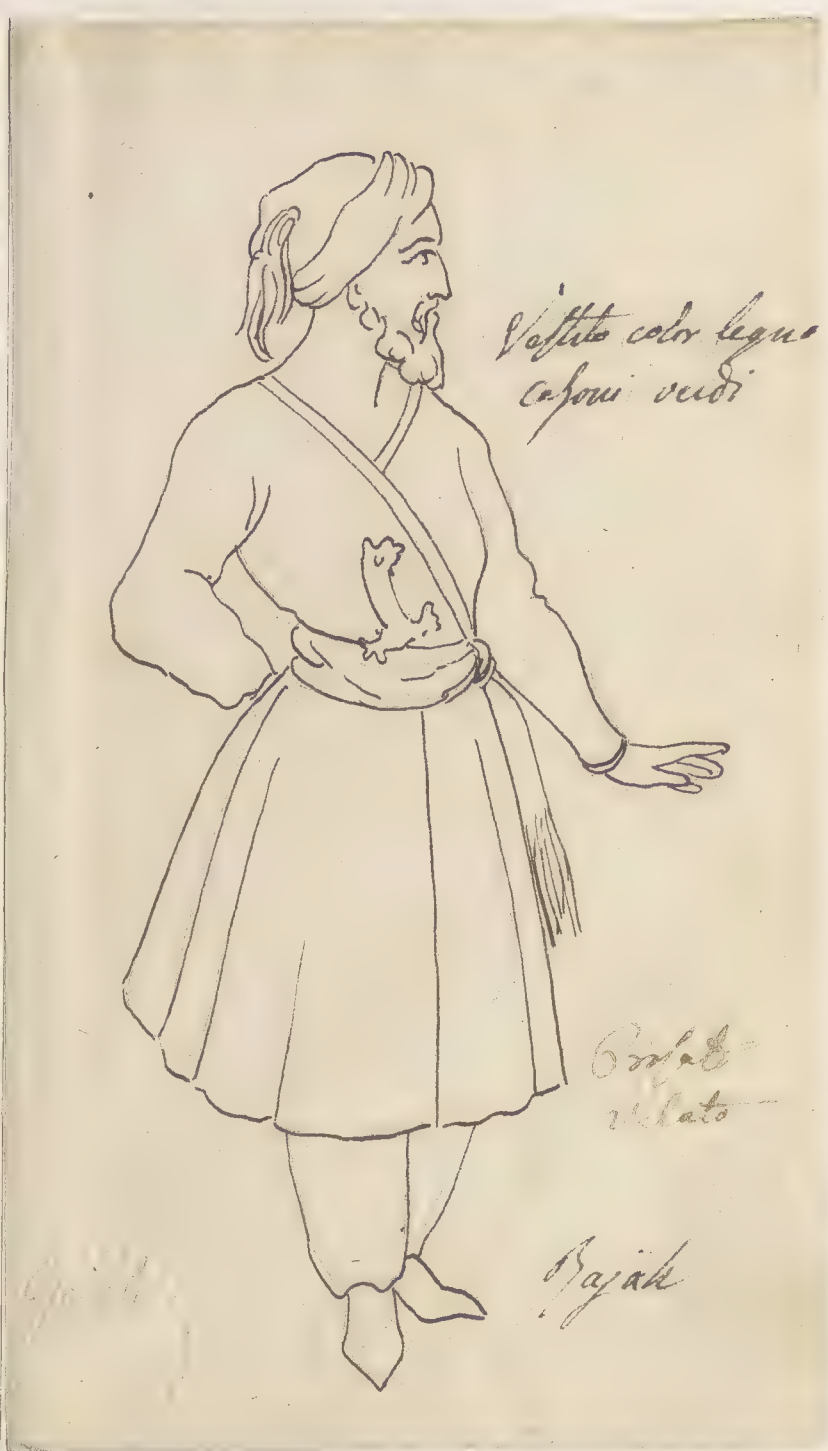 Vestito color legno
calzoni verdi
velato
Rajah